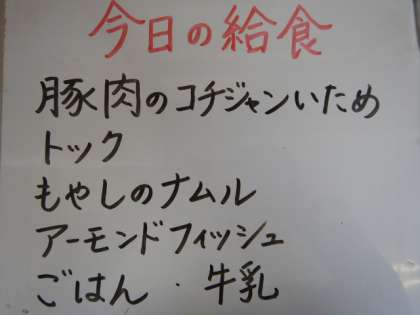 今日の給食
豚肉のコチジャンいため
トック
もやしのナムル
アーモンドフィッシュ
ごはん・牛乳